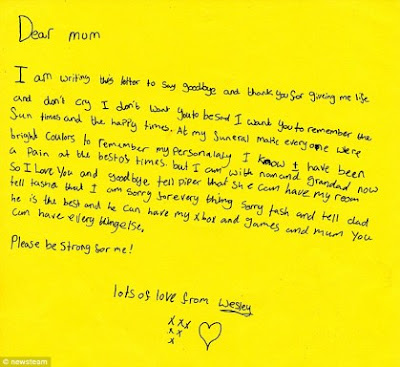 Dear mum
I am writing this letter to say goodbye and thank you for giveing me life
and don't cry I don't want you to be sad I want you to remember the
fun times and the happy times. At my funeral make everyone were
bright coulors to remember my personalaty I know I have been
a pain at the best of times. but I am with nan and grandad now
So I Love You and goodbye tell piper that she can have my room
tell tasha that I am sorry for every thing sorry tash and tell dad
he is the best and he can have my xbox and games and mum you
can have every thing else.
Please be strong for me!
lots of love from Wesley
x x x
x x
x
© newsteam